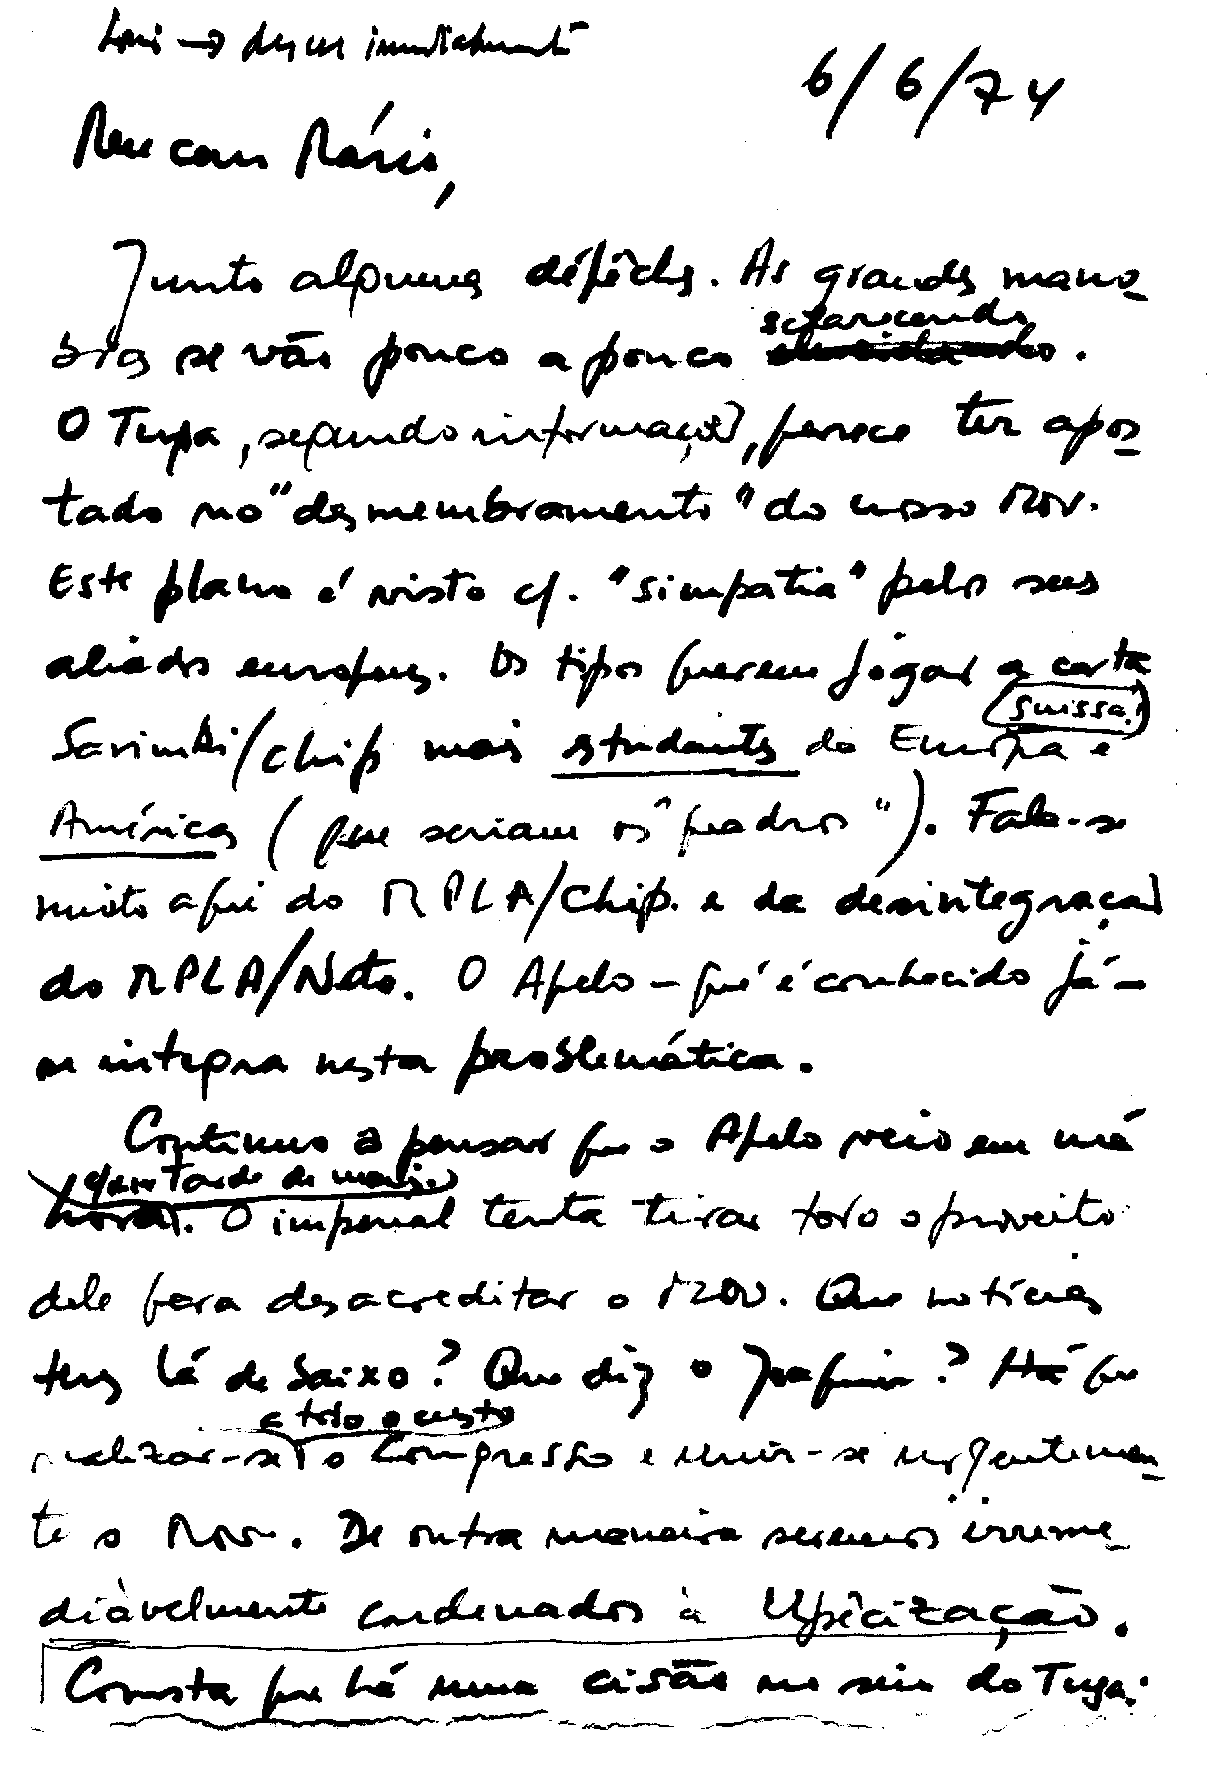 6/6/74
Meu caro Mário,
Junto algumas dépêches. As grandes mano-
bras se vão pouco a pouco esclarecendo.
O Tuga, segundo informações, parece ter apos-
tado no "desmembramento" do nosso Mov.
Este plano é visto c/. "simpatia" pelos seus
aliados europeus. Os tipos querem jogar a carta
Savimbi/Chip mais estudantes da Europa (suissa!) e
Américas (que seriam os "quadros"). Fala-se
muito aqui do MPLA/Chip. e da desintegração
do MPLA/Neto. O Apelo - que é conhecido já -
se integra nesta problemática.
Continuo a pensar que o Apelo veio em má
hora (tarde de mais). O imperial tenta tirar todo o proveito
dele para desacreditar o Mov. Que notícias
tens lá de baixo? Que diz o ? Há que
realizar-se a todo o custo o Congresso e unir-se urgentemen-
te o Mov. De outra maneira seremos irreme-
diàvelmente condenados à Upêcização.
Consta que há uma cisão no seio do Tuga.